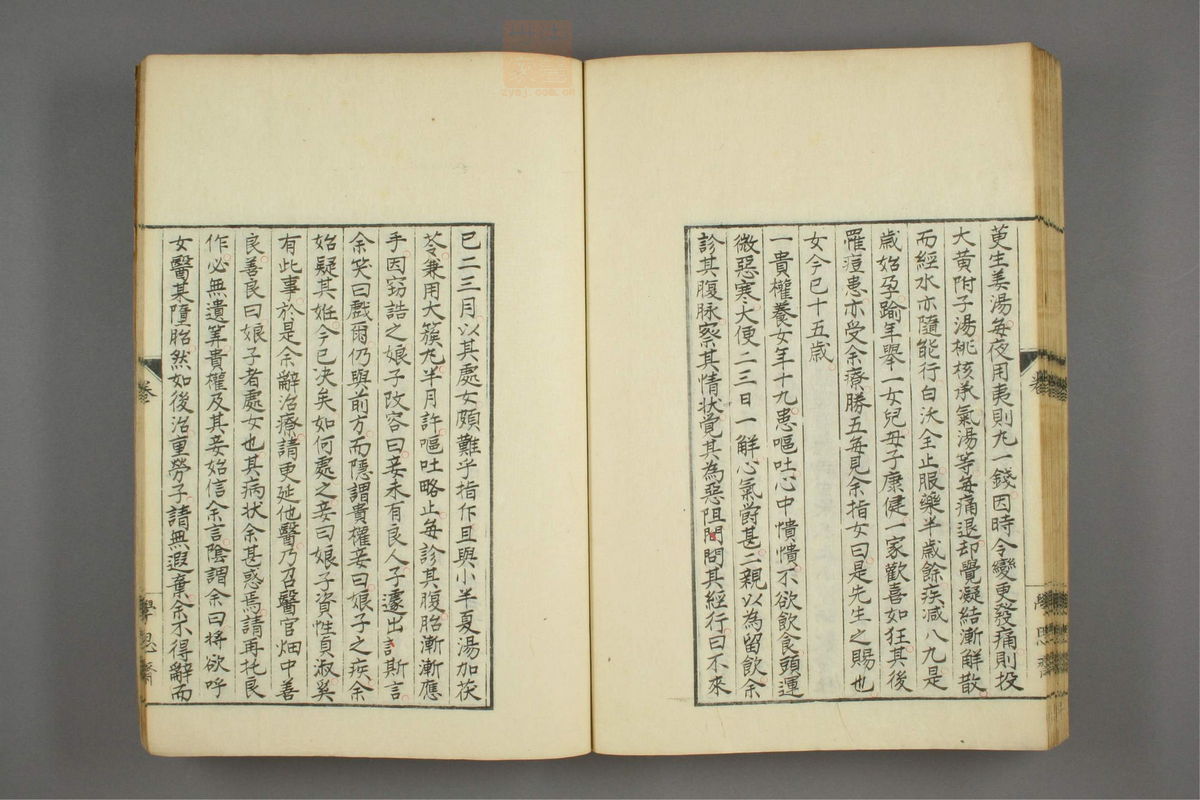 更生姜湯每夜用夷則丸一錢因時令變更發痛則投
大黃附子湯桃核承氣湯等每痛退却覺凝結漸解散
而經水亦隨能行白沃全止服藥半歲餘疾減八九是
歲始孕踰年舉一女兒母子康健一家歡喜如狂其後
罹痘患亦受余療勝五每見余指女曰是先生之賜也
女今已十五歲
一貴權養女年十九患嘔吐心中憒憒不欲飲食頭運
微惡寒大便二三日一解心氣欝甚二親以為留飲余
診其腹脉察其情状覺其為惡阻問其經行曰不來
已二三月以其處女頗難乎指作且與小半夏湯加茯
苓兼用大簇丸半月許嘔吐略止每診其腹胎漸漸應
手因窃詰之娘子改容曰妾未有良人子遽出斯言
余笑曰戲爾仍與前方而隱謂貴權妾曰娘子之疾余
始疑其妊今已决矣如何處之妾曰娘子資性貞淑奚
有此事於是余辭治療請更延他醫乃召醫官畑中善
良善良曰娘子者處女也其病状余甚惑焉請再托良
作必無遺筭貴權及其妾始信余言陰謂余曰將欲呼
女醫某墮胎然如後治重勞子請無遐棄余不得辭而
卷
學思齋